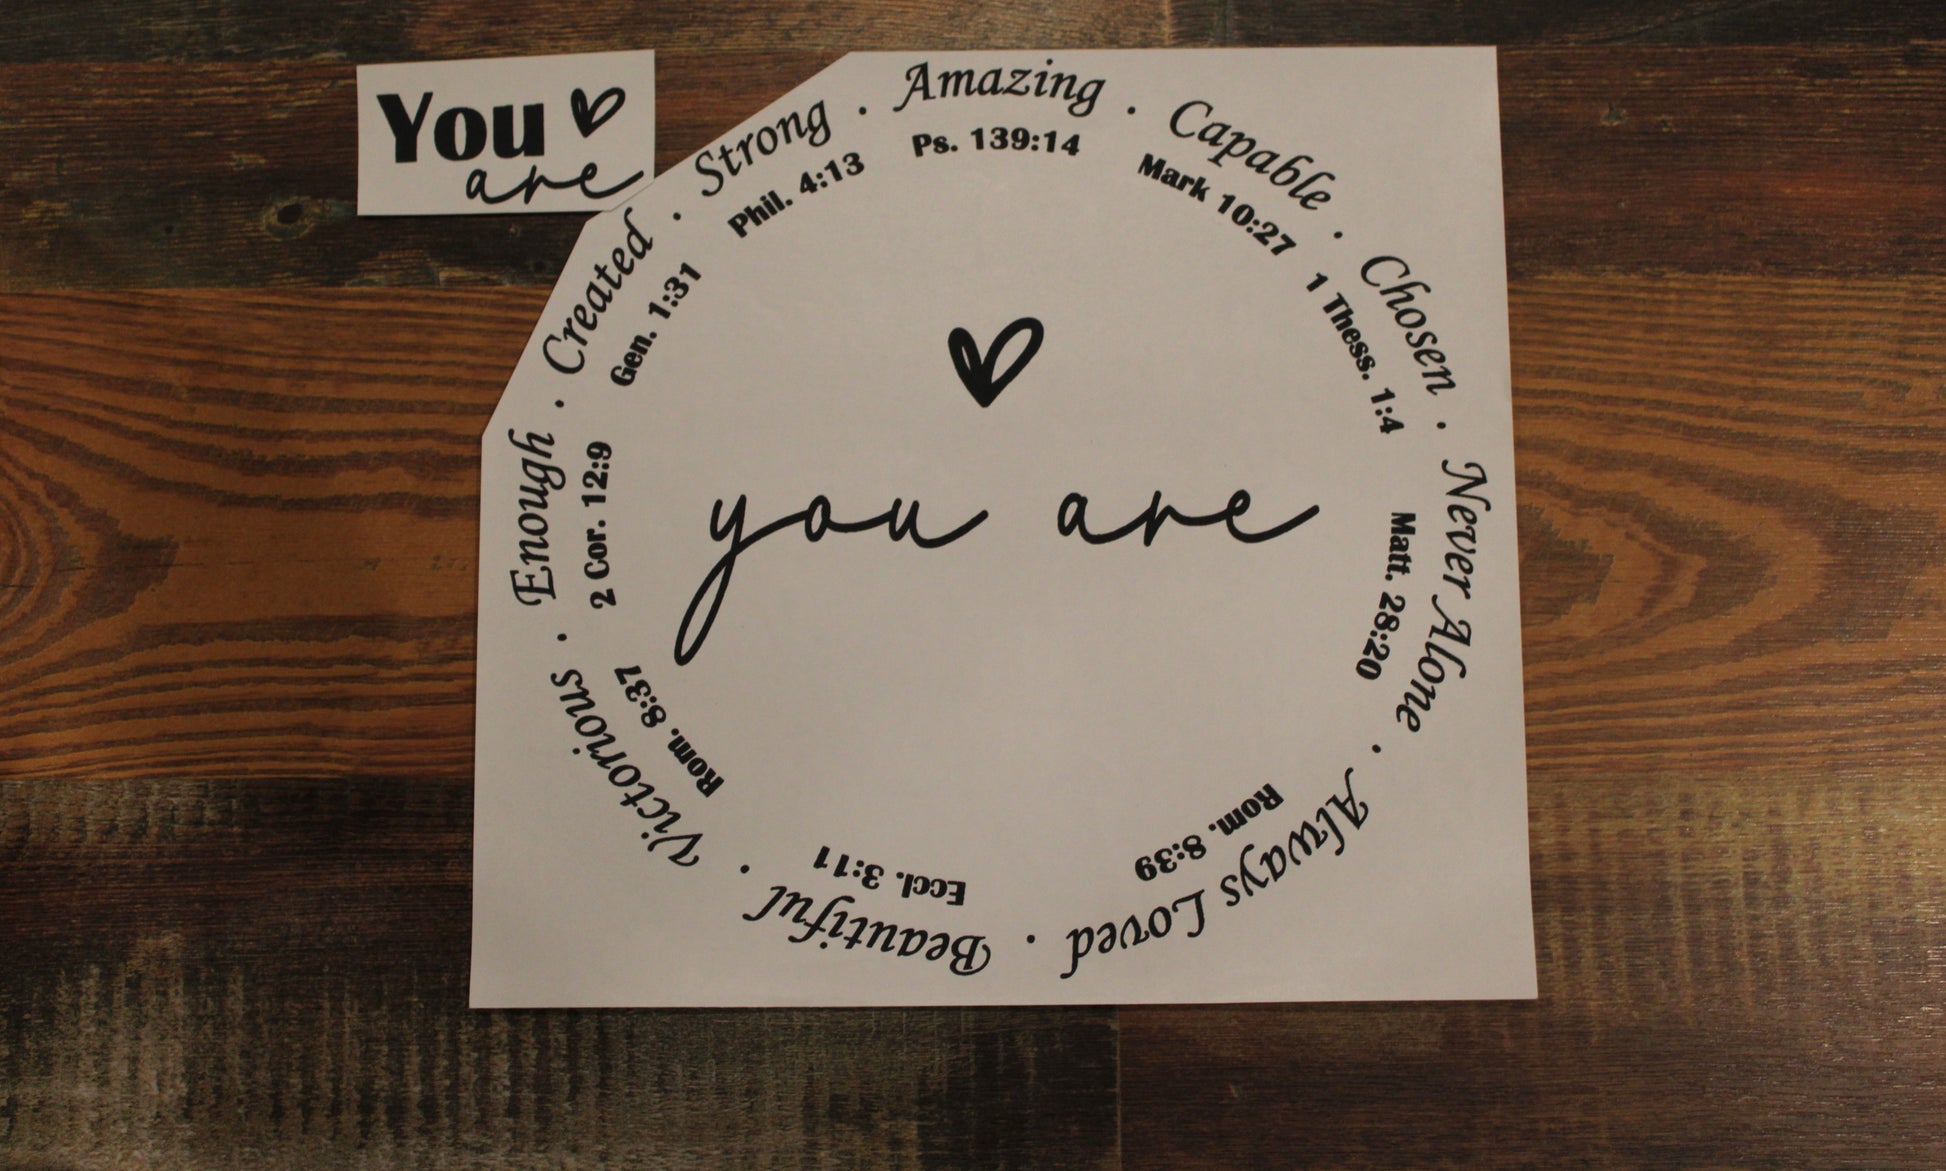 You
are
Amazing
Ps. 139:14
Capable
Mark 10:27
Chosen
1 Thess. 1:4
Never Alone
Matt. 28:20
Always Loved
Rom. 8:39
Beautiful
Eccl. 3:11
Victorious
Rom. 8:37
Enough
2 Cor. 12:9
Created
Gen. 1:31
Strong
Phil. 4:13
you are